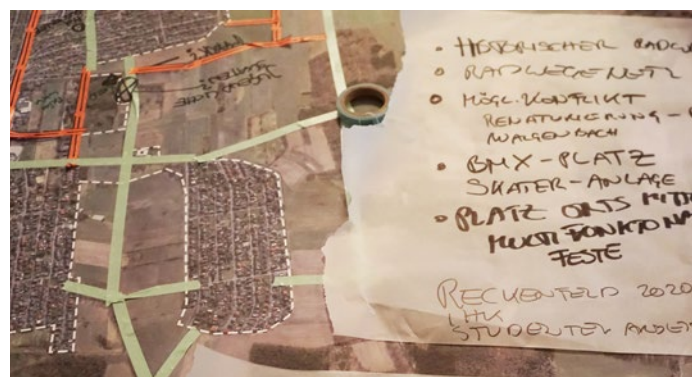 HISTORISCHER
RADWEGENETZ
MÖGL. KONFLIKT
RENATURIERUNG -
WALGENBACH
BMX-PLATZ
SKATER-ANLAGE
PLATZ ORTSMITTE
MULTIFUNKTIONA
FESTE
RECKENFELD 2020
IHK
STUDENTEN